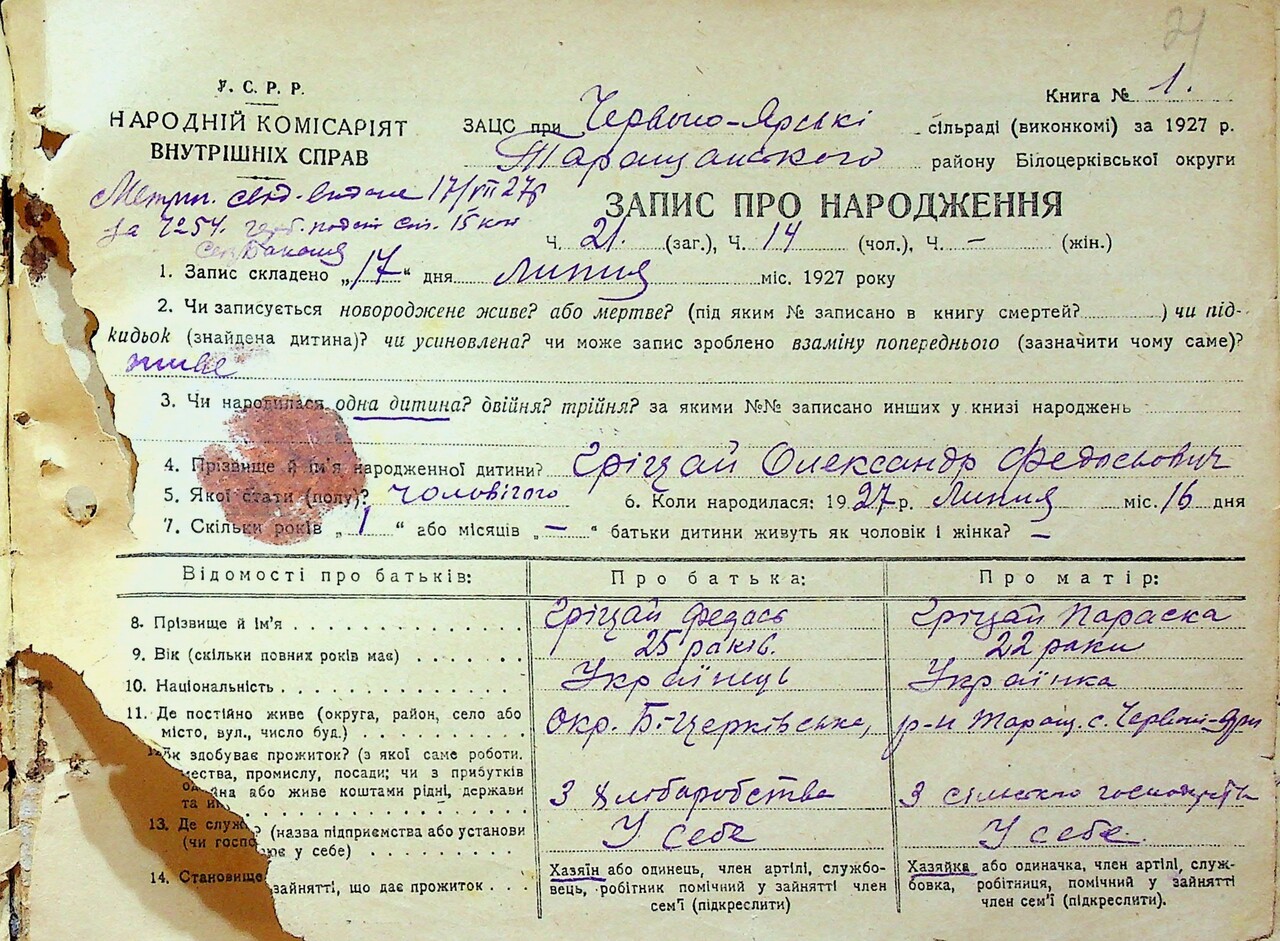 21
У. С. Р. Р.
НАРОДНІЙ КОМІСАРІЯТ
ВНУТРІШНІХ СПРАВ
Книга № 1.
ЗАЦС при Червоно-Ярські сільраді (виконкомі) за 1927 р.
Таращанського району Білоцерківської округи
Метрич. свід. видане 17/VII 27р
за №254. герб. 15 коп
ЗАПИС ПРО НАРОДЖЕННЯ
Ч. 21. (заг.), Ч. 14 (чол.), Ч. – (жін.)
1. Запис складено „17“ дня Липня міс. 1927 року
2. Чи записується новороджене живе? або мертве? (під яким № записано в книгу смертей?) чи під-
кидьок (знайдена дитина)? чи усиновлена? чи може запис зроблено взаміну попереднього (зазначити чому саме)?
живе
3. Чи народилася одна дитина? двійня? трійня? за якими №№ записано инших у книзі народжень
4. Прізвище й ім'я народженної дитини? Гріцай Олександр Федосьович
5. Якої стати (полу)? чоловічого 6. Коли народилася: 1927 р. Липня міс. 16 дня
7. Скільки років „1“ або місяців „–“ батьки дитини живуть як чоловік і жінка? –
Відомості про батьків: Про батька: Про матір:
8. Прізвище й ім'я Гріцай Федось Гріцай Параска
9. Вік (скільки повних років має) 25 років. 22 роки
10. Національність Українець Українка
11. Де постійно живе (округа, район, село або
місто, вул., число буд.) Окр. Б-Церківська, р-н Таращ. с. Червоні-Яри
як здобуває прожиток? (з якої саме роботи.
мества, промислу, посади; чи з прибутків
або живе коштами рідні, держави
та З хліборобства З сільського господарства
13. Де служ ? (назва підприємства або установи
(чи госпо ює у себе) У себе У себе.
14. Становище зайнятті, що дає прожиток
Хазяїн або одинець, член артілі, службо-
вець, робітник помічний у зайнятті член
сем'ї (підкреслити)
Хазяйка або одиначка, член артілі, служ-
бовка, робітниця, помічний у зайнятті
член сем'ї (підкреслити).